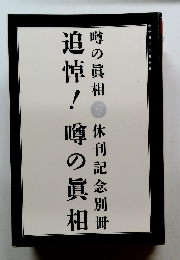 噂の眞相
休刊記念別冊
追悼!噂の眞相